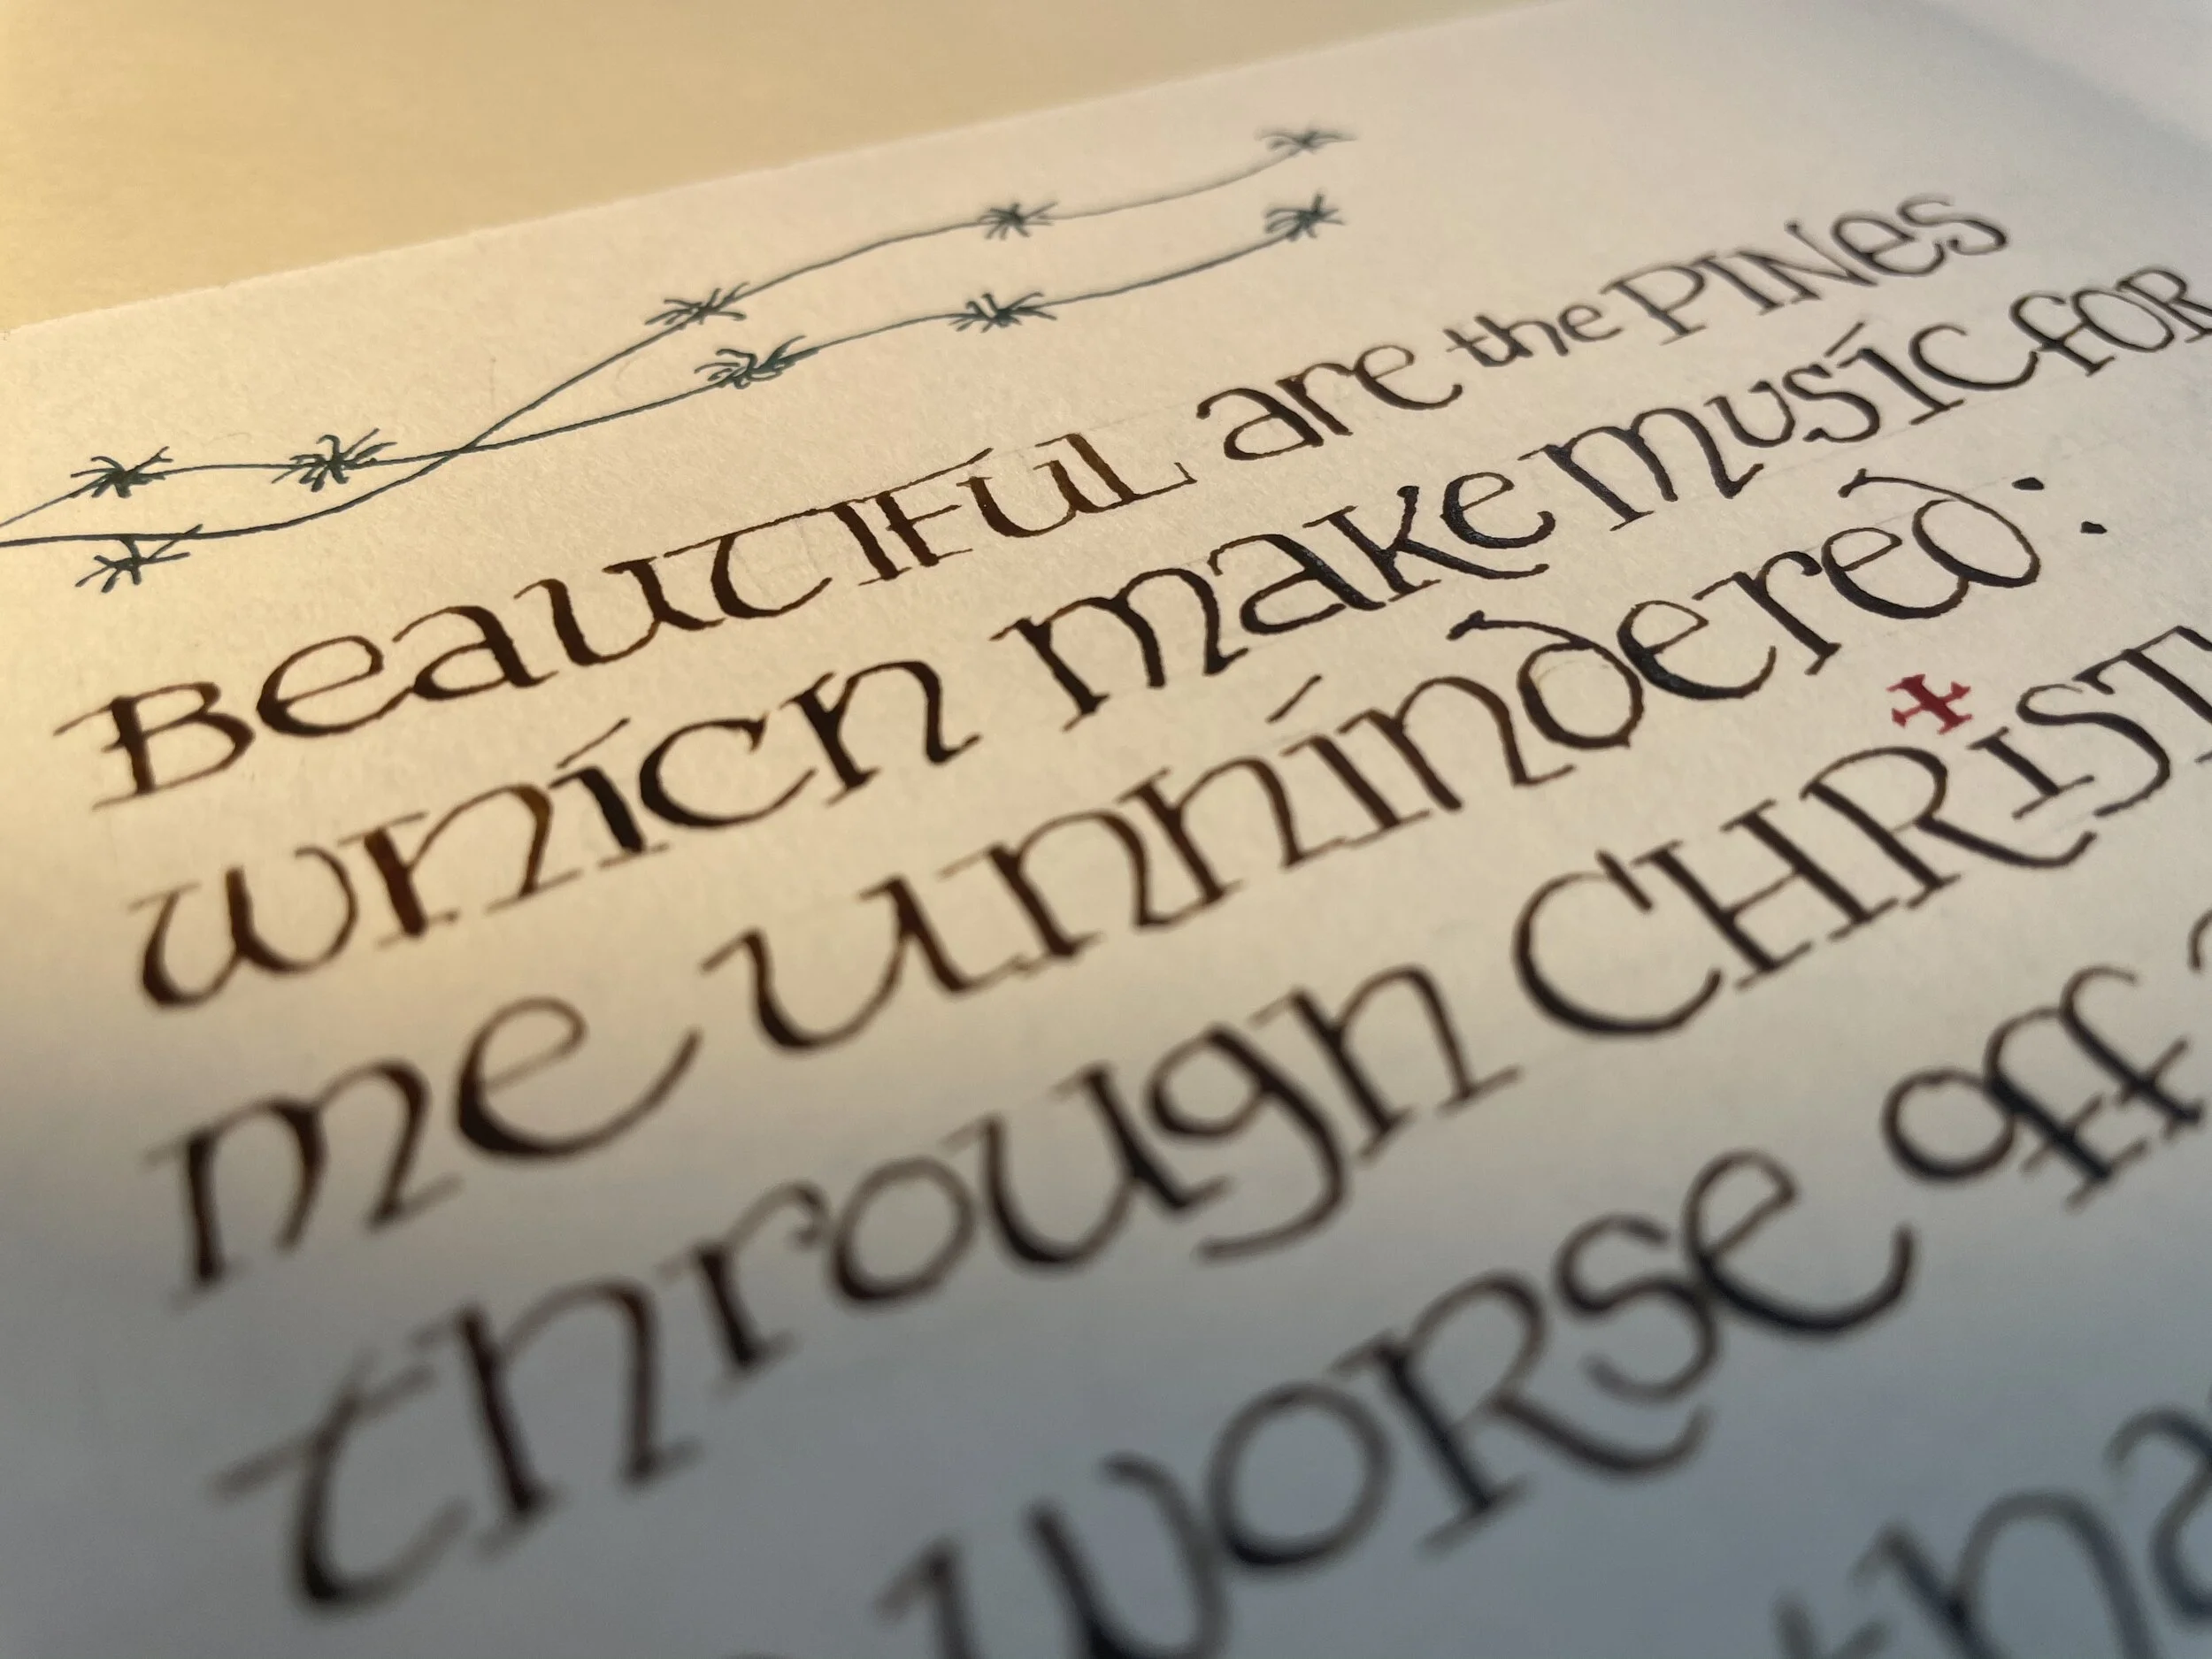 Beautiful are the PINes
which make music for
me unhindered:
through CHRIST
worse off